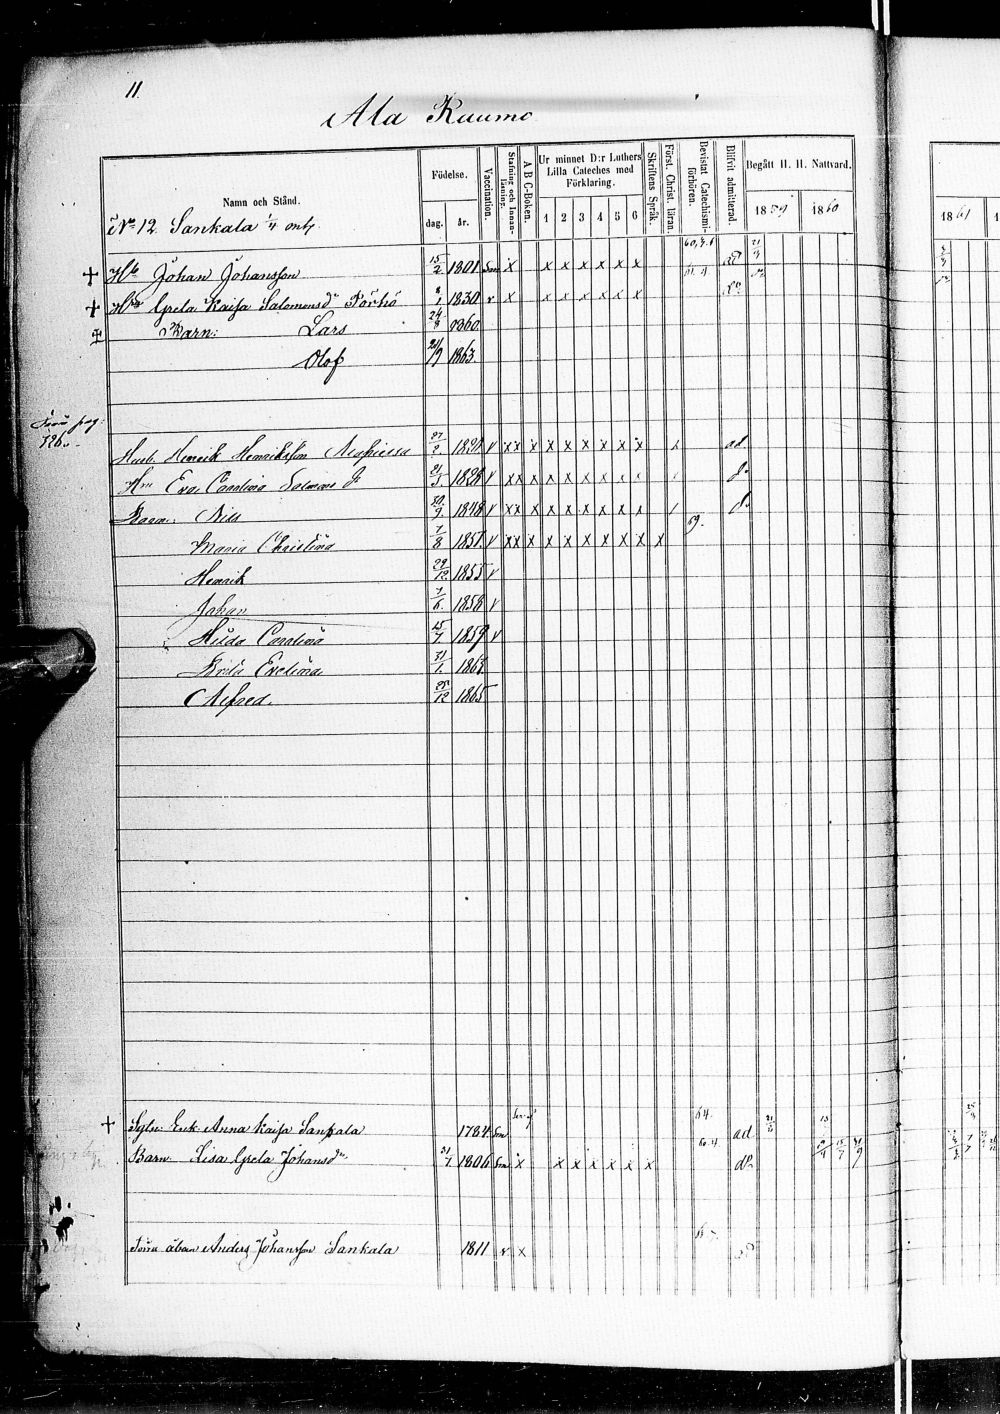 11.
Ala Kuumo
Namn och Stånd.
Födelse.
dag.
år.
Vaccination.
Stafning och Innanläsning.
A B C-Boken.
Ur minnet D:r Luthers
Lilla Cateches med
Förklaring.
1 2 3 4 5 6
Skriftens Språk.
Först. Christ. läran.
Bevistat Catechismiförhören.
Blifvit admitterad.
Begått H. H. Nattvard.
1859 1860
1861
No 12. Sankala 1/4
Johan Johansson 15/2 1801 x x x x x x x 21/3
Greta Kaisa Salomonsdr 8/1 1830 v x x x x x x x
Barn: Lars 24/8 1860
Olof 21/9 1863.
Från pag: 126.
Husb. Henrik Henriksson 27/2 v x x x x x x x x x ad.
Hm Eva Carolina 21/3 1828 v x x x x x x
Barn: Nils 30/9 1848 v x x x x x x x x
69.
Maria Christina 7/8 1851. v x x x x x x x x x x
Henrik 29/12 1855 v
Johan 7/6. 1858 v
Hilda Carolina 15/7 1859 v
Brita Evelina 31/1. 1863.
Alfred. 25/12 1865
64.
Enk. Anna Kaisa Sankala 1784. ad. 21/3
Barn Lisa Greta Johansdr 31/7 1806 x x x x x x x
Anders Johansson Sankala 1811 v x